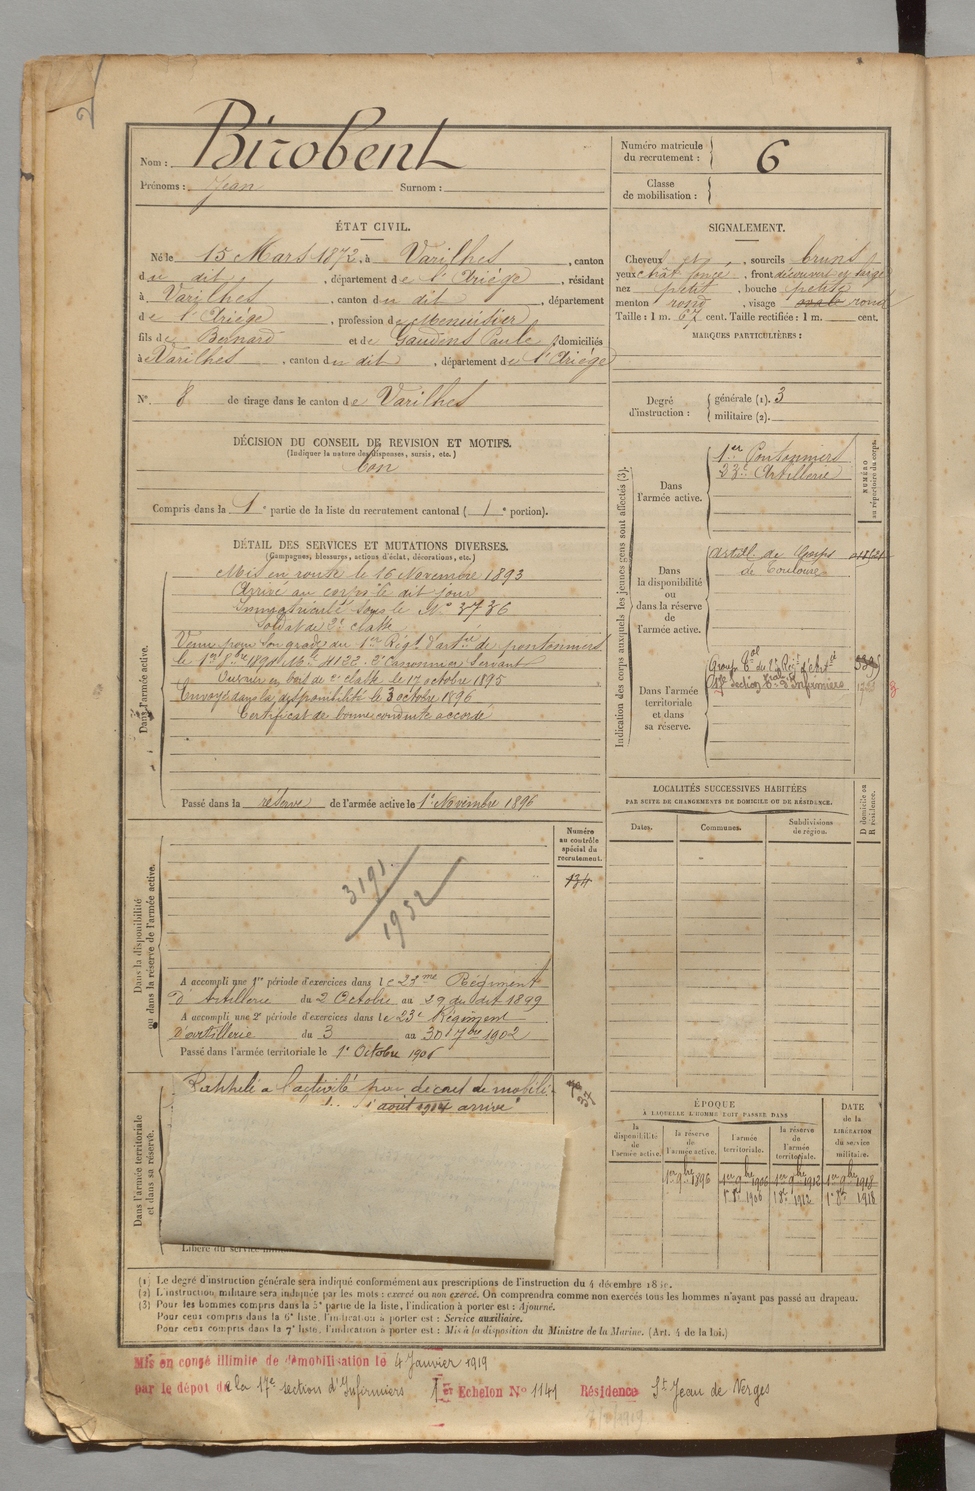 Nom : Birobent
Prénoms : Jean Surnom :
Numéro matricule du recrutement : 6
Classe de mobilisation :
ÉTAT CIVIL.
Né le 15 Mars 1872, à Varilhes, canton
du dit, département de l'Ariége, résidant
à Varilhes, canton du dit, département
de l'Ariége, profession de Menuisier
fils de Bernard et de Gaudens Paule, domiciliés
à Varilhes, canton du dit, département de l'Ariége
N° 8 de tirage dans le canton de Varilhes
SIGNALEMENT.
Cheveux , sourcils bruns
yeux chât foncé, front découvert et large
nez petit, bouche petite
menton rond, visage ovale rond
Taille : 1 m. 67 cent. Taille rectifiée : 1 m. cent.
MARQUES PARTICULIÈRES :
Degré d'instruction : générale (1). 3
militaire (2).
DÉCISION DU CONSEIL DE REVISION ET MOTIFS.
(Indiquer la nature des dispenses, sursis, etc.)
bon
Compris dans la 1e partie de la liste du recrutement cantonal ( 1e portion).
DÉTAIL DES SERVICES ET MUTATIONS DIVERSES.
(Campagnes, blessures, actions d'éclat, décorations, etc.)
Dans l'armée active.
Mis en route le 16 Novembre 1893
Arrivé au corps le dit jour
Immatriculé sous le N° 3736
Soldat de 2e classe
Venu pour son grade au 1er Régt d'artie de pontonniers
le 1891 4122 2e Canonnier Servant
Ouvrier en bois de classe le 17 octobre 1895
Envoyé dans la disponibilité le 3 octobre 1896
Certificat de bonne conduite accordé
Passé dans la réserve de l'armée active le 1er Novembre 1896
Indication des corps auxquels les jeunes gens sont affectés (3).
NUMÉRO au répertoire du corps.
Dans l'armée active.
1er Pontonniers
23e Artillerie
Dans la disponibilité ou dans la réserve de l'armée active.
Artil. de Corps
de Toulouse
Dans l'armée territoriale et dans sa réserve.
Groupe Tal du 2e Régt d'Artie
17e Section Triale d'Infirmiers
LOCALITÉS SUCCESSIVES HABITÉES
PAR SUITE DE CHANGEMENTS DE DOMICILE OU DE RÉSIDENCE.
Dates. Communes. Subdivisions de région. D domicile ou R résidence.
Dans la disponibilité ou dans la réserve de l'armée active.
Numéro au contrôle spécial du recrutement.
134
3191
1932
A accompli une 1re période d'exercices dans le 23me Régiment
D'Artillerie du 2 Octobre au 29 du dit 1899
A accompli une 2e période d'exercices dans le 23e Régiment
D'artillerie du 3 au 30 7bre 1902
Passé dans l'armée territoriale le 1er Octobre 1906
Dans l'armée territoriale et dans sa réserve.
Rappelé à l'activité par décret de mobili-
août 1914 arrivé
Libéré du service
ÉPOQUE
À LAQUELLE L'HOMME DOIT PASSER DANS
la disponibilité de l'armée active. la réserve de l'armée active. l'armée territoriale. la réserve de l'armée territoriale.
DATE de la LIBÉRATION du service militaire.
1er 9bre 1896 1er 9bre 1906 1er 9bre 1912 1er 9bre 1918
1er 8bre 1906 1er 8bre 1912 1er 8bre 1918
(1) Le degré d'instruction générale sera indiqué conformément aux prescriptions de l'instruction du 4 décembre
(2) L'instruction militaire sera indiquée par les mots : exercé ou non exercé. On comprendra comme non exercés tous les hommes n'ayant pas passé au drapeau.
(3) Pour les hommes compris dans la 5e partie de la liste, l'indication à porter est : Ajourné.
Pour ceux compris dans la 6e liste, l'indication à porter est : Service auxiliaire.
Pour ceux compris dans la 7e liste, l'indication à porter est : Mis à la disposition du Ministre de la Marine. (Art. 4 de la loi.)
Mis en congé illimité de démobilisation le 4 Janvier 1919
par le dépôt de la 17e section d'Infirmiers 1er Echelon N° 1141 Résidence St Jean de Verges